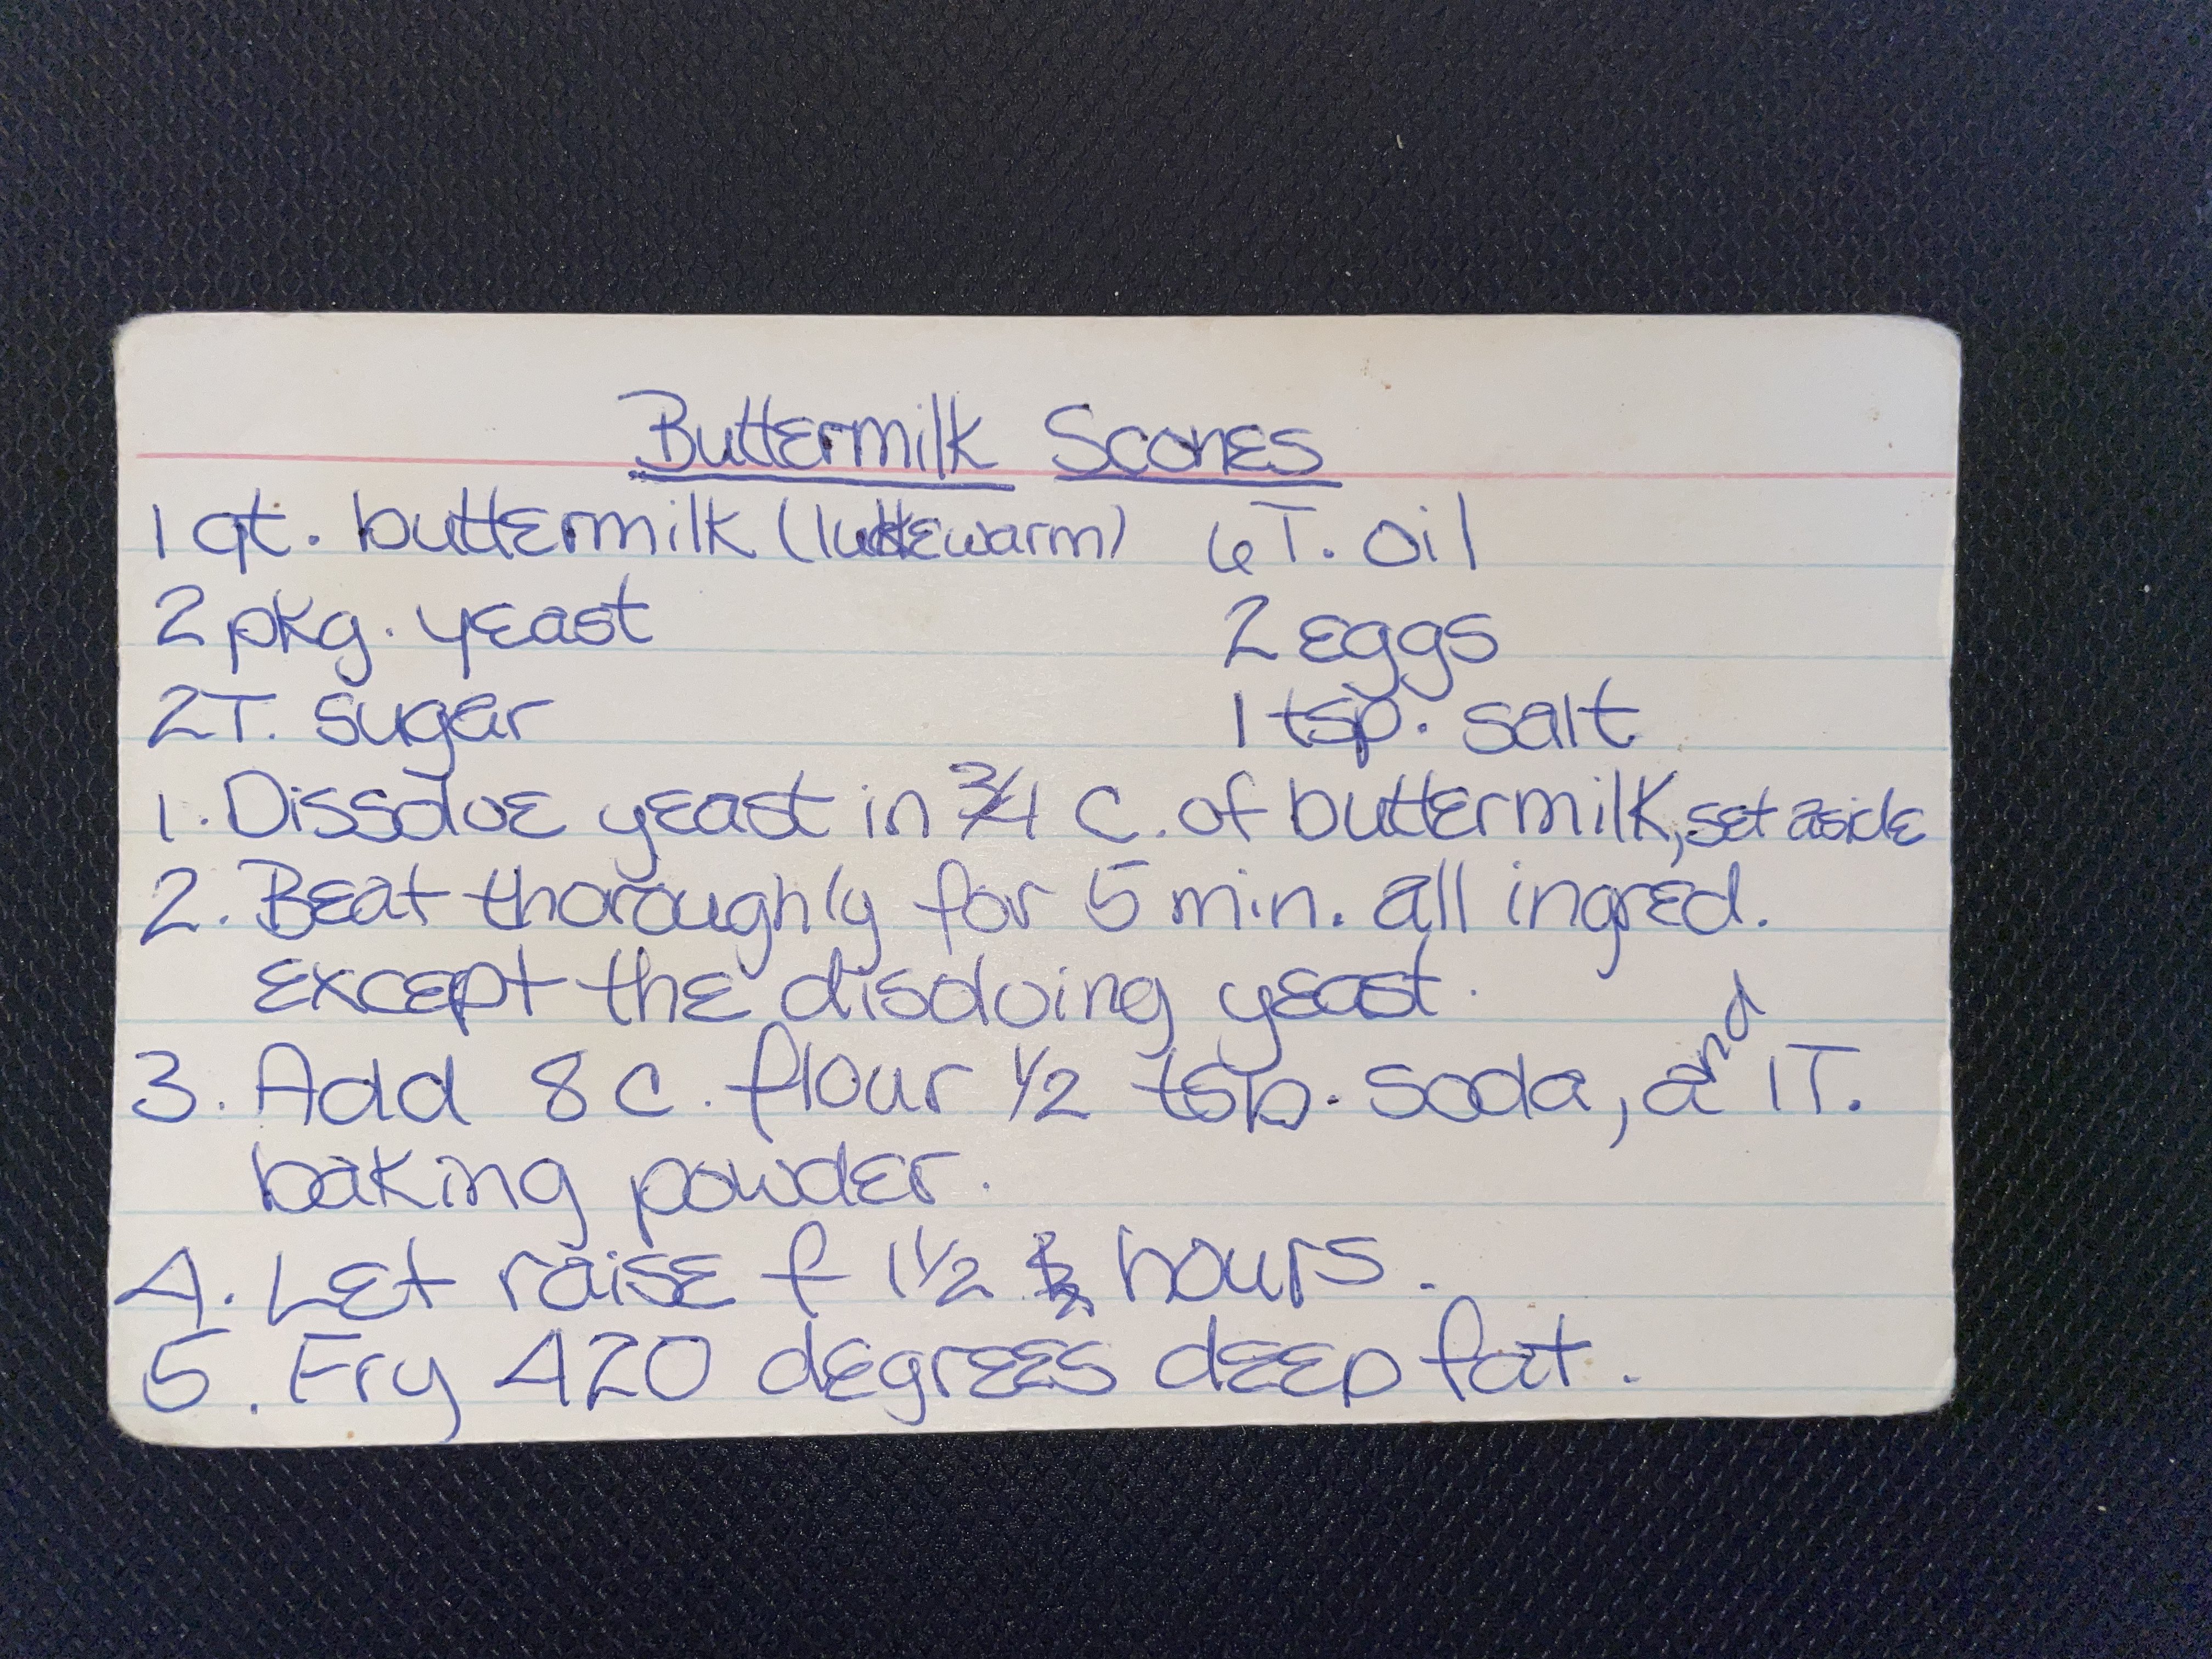 Buttermilk Scones
1 qt. buttermilk (lukewarm) 6T. oil
2 pkg. yeast 2 eggs
2T. sugar 1 tsp. salt
1. Dissolve yeast in 3/4 c. of buttermilk, set aside
2. Beat thoroughly for 5 min. all ingred.
except the disolving yeast.
3. Add 8 c. flour 1/2 tsp. soda, and 1T.
baking powder.
4. Let raise f 1 1/2 hours.
5. Fry 420 degrees deep fat.